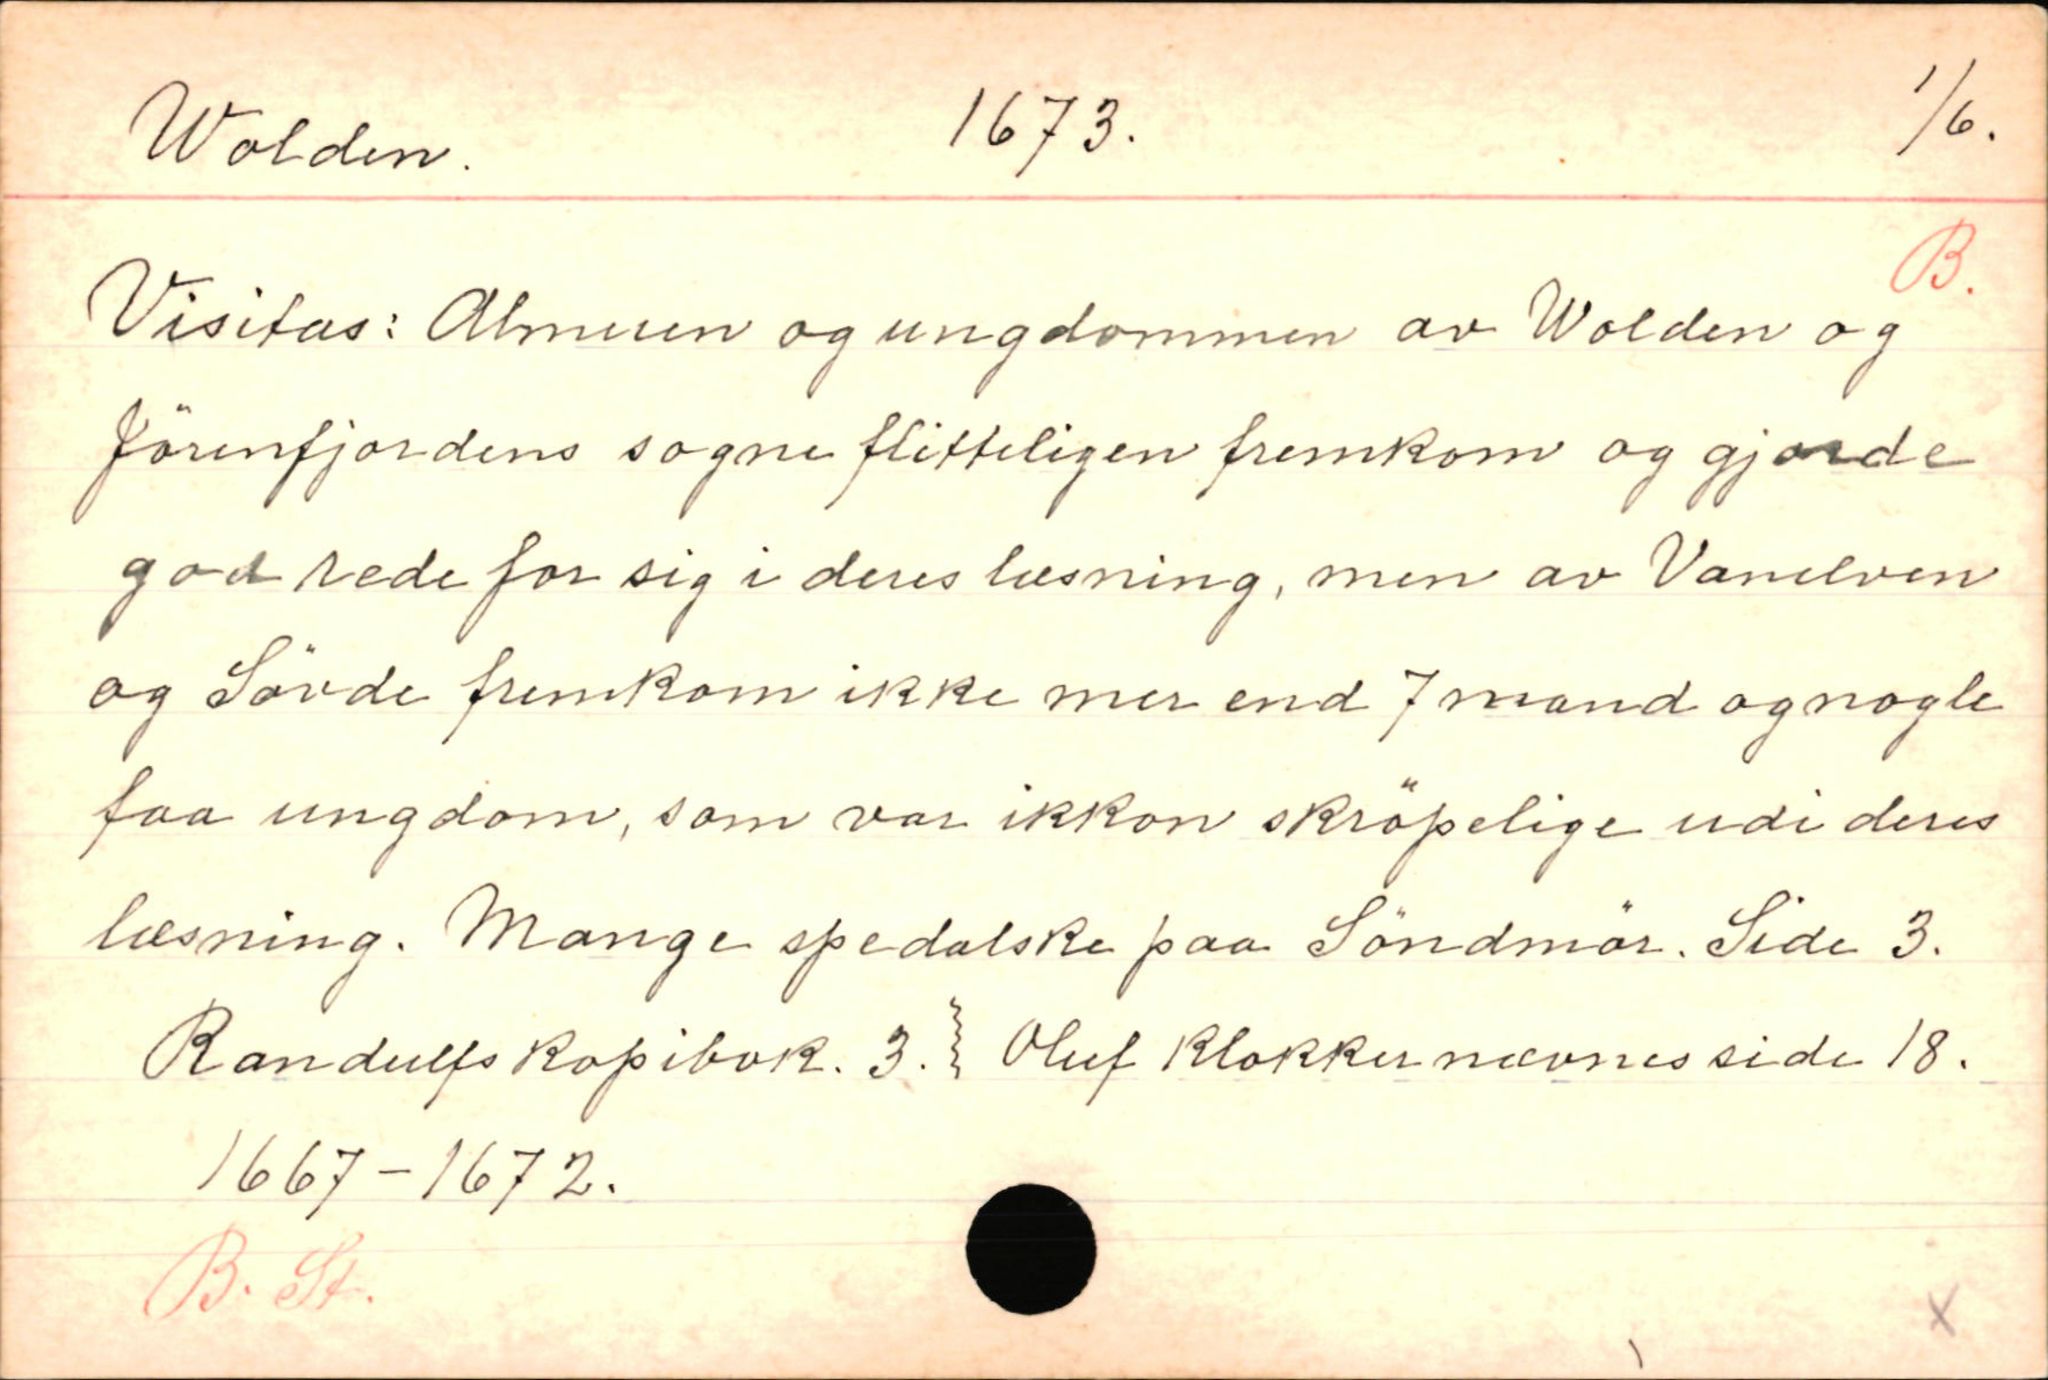 Wolden. 1673. 1/6.
B.
Visitas: Almuen og ungdommen av Wolden og
Jörenfjordens sogne flitteligen fremkom og gjorde
god rede for sig i deres læsning, men av Vanelven
og Sövde fremkom ikke mer end 7 mand og nogle
faa ungdom, som var ikkon skröpelige udi deres
læsning. Mange spedalske paa Söndmör. Side 3.
Randulfs kopibok. 3. Oluf Klokker nævnes side 18.
1667-1672.
B. St.
X